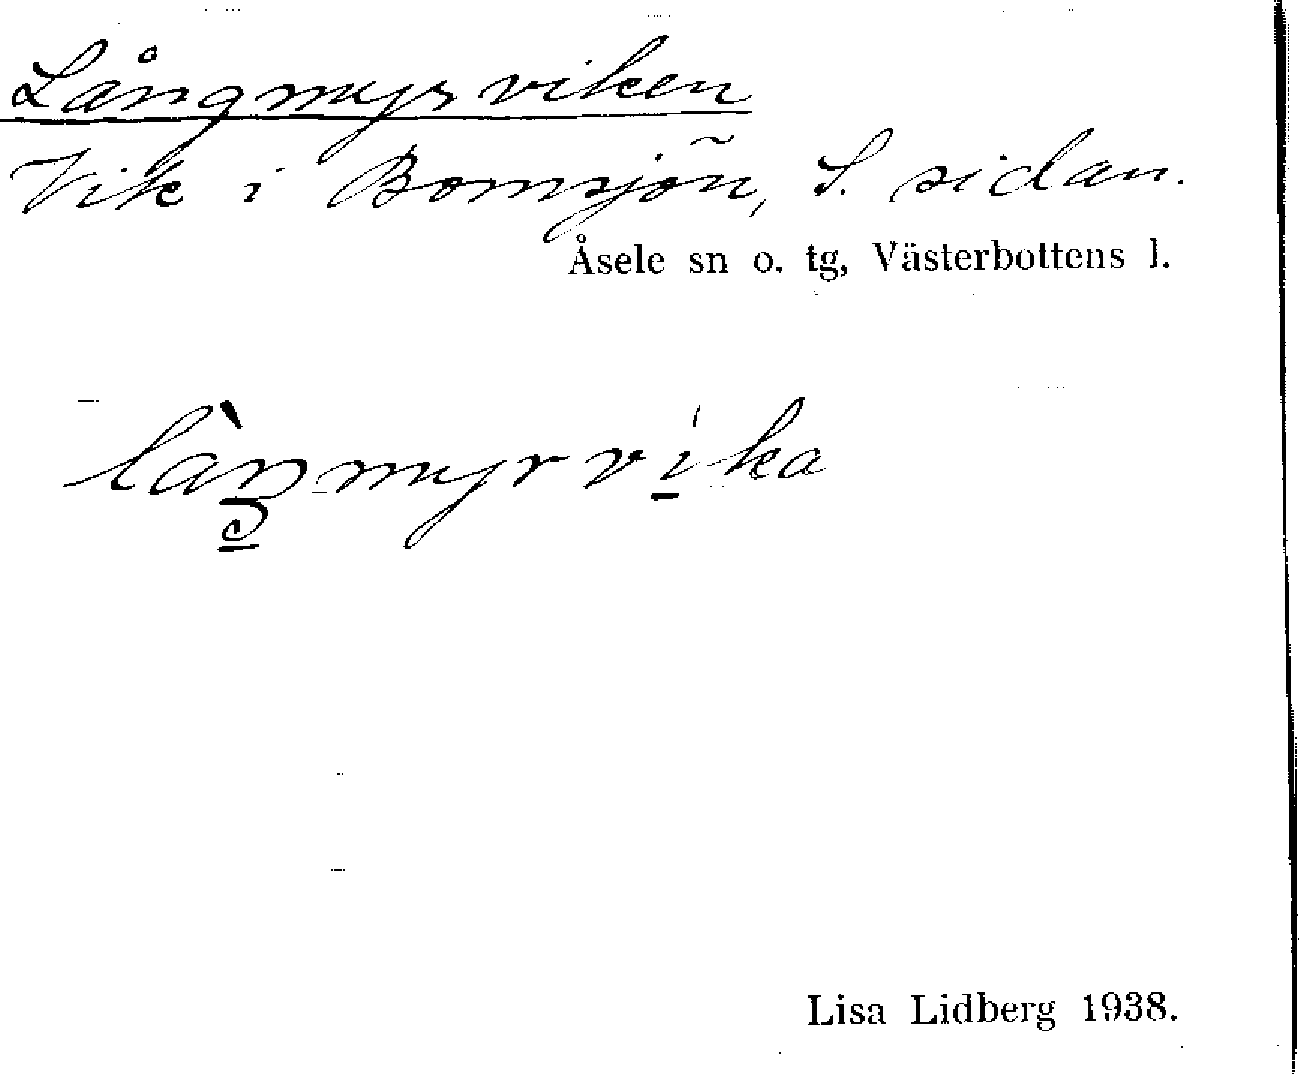 Långmyrviken
Vik i Bomsjön, S. sidan.
Åsele sn o. tg, Västerbottens l.
làŋmyrvika
Lisa Lidberg 1938.